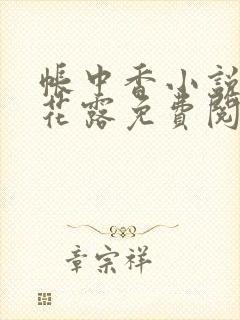 帳中香小說
花露免費閱
章宗祥